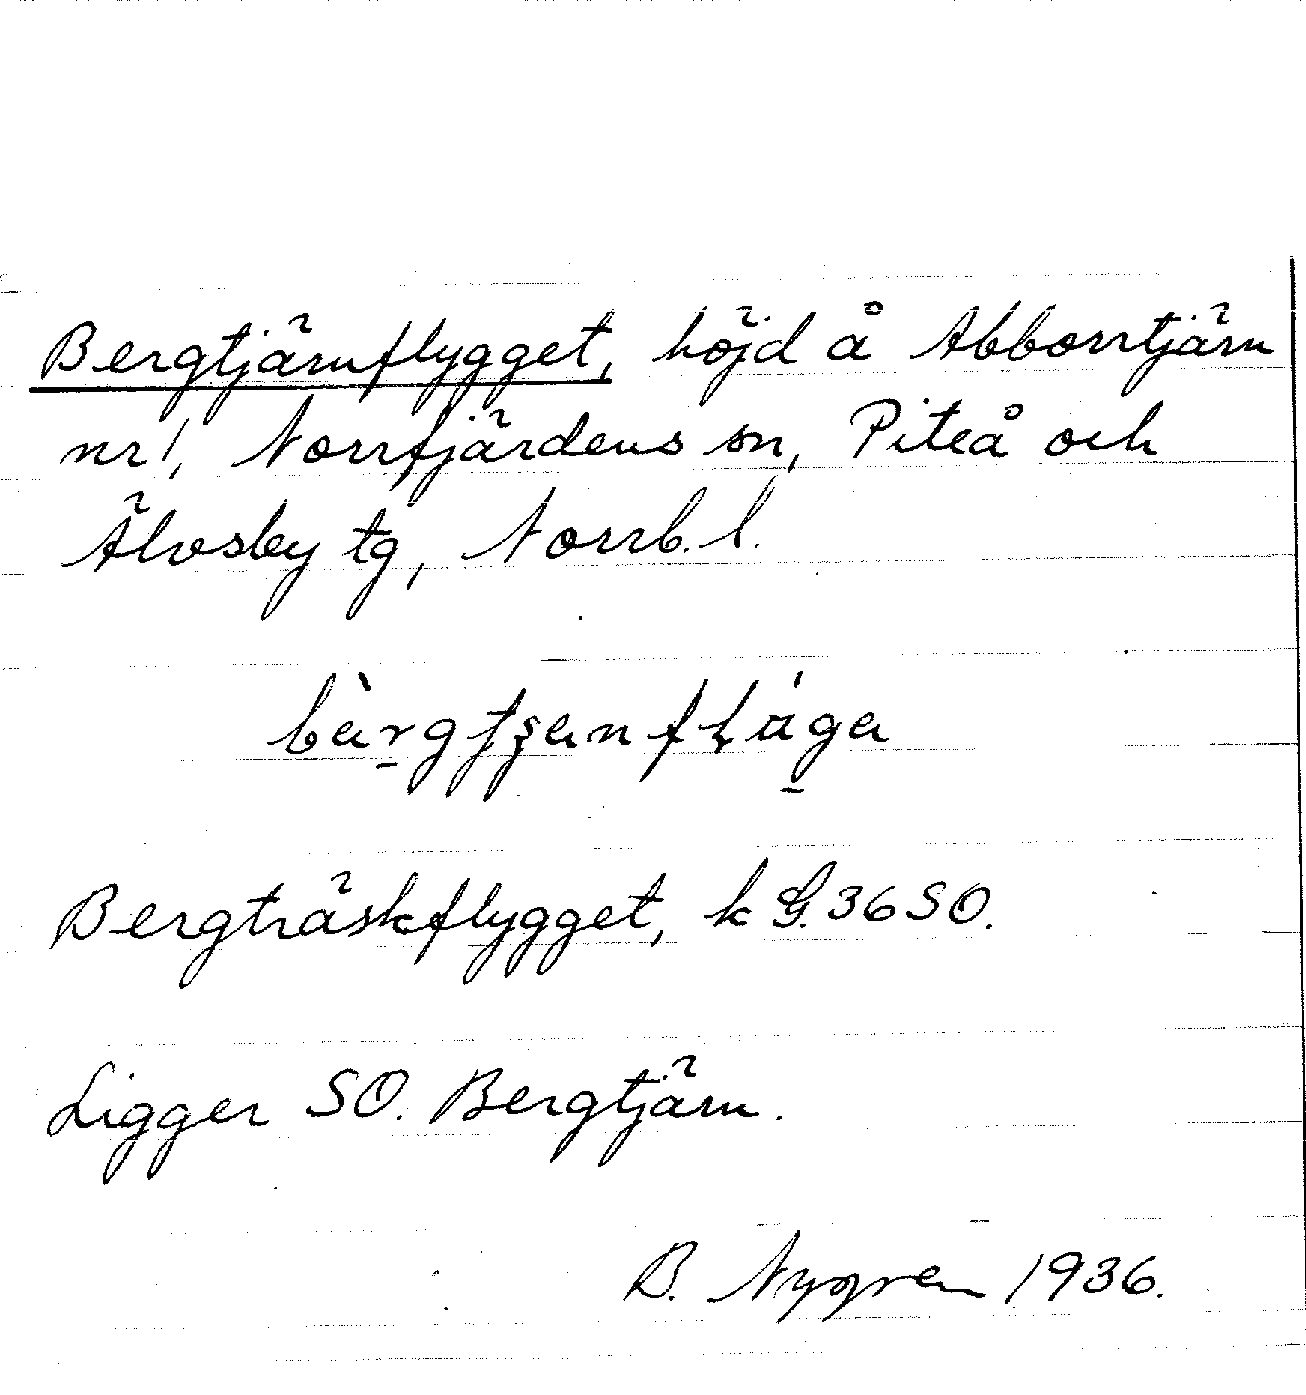 Bergtjärnflygget, höjd å Abborrtjärn
nr 1, Norrfjärdens sn, Piteå och
Älvsby tg, Norrb. l.
Bergträskflygget, k G.36 SO.
Ligger SO. Bergtjärn.
B. Nygren 1936.